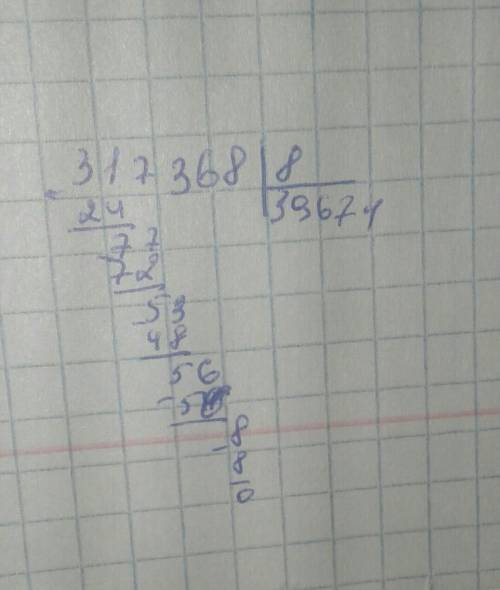 317 368 | 8
24 39671
77
72
53
48
56
56
8
8
0